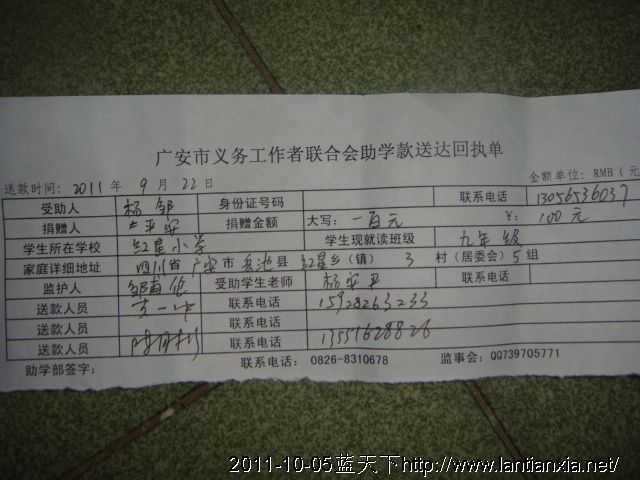 广安市义务工作者联合会助学款送达回执单
送款时间: 2011 年 9 月 22 日 金额单位: RMB (元
受助人 杨邹 身份证号码 联系电话 13056536037
捐赠人 卢平安 捐赠金额 大写: 一百元 ¥: 100元
学生所在学校 红星小学 学生现就读班级 九年级
家庭详细地址 四川省广安市岳池县红星乡(镇) 3 村(居委会) 5 组
监护人 受助学生老师 杨安平 联系电话
送款人员 联系电话 15928263233
送款人员 联系电话
送款人员 联系电话 13551628826
助学部签字: 联系电话: 0826-8310678 监事会: QQ739705771
2011-10-05蓝天下http://www.lantianxia.net/